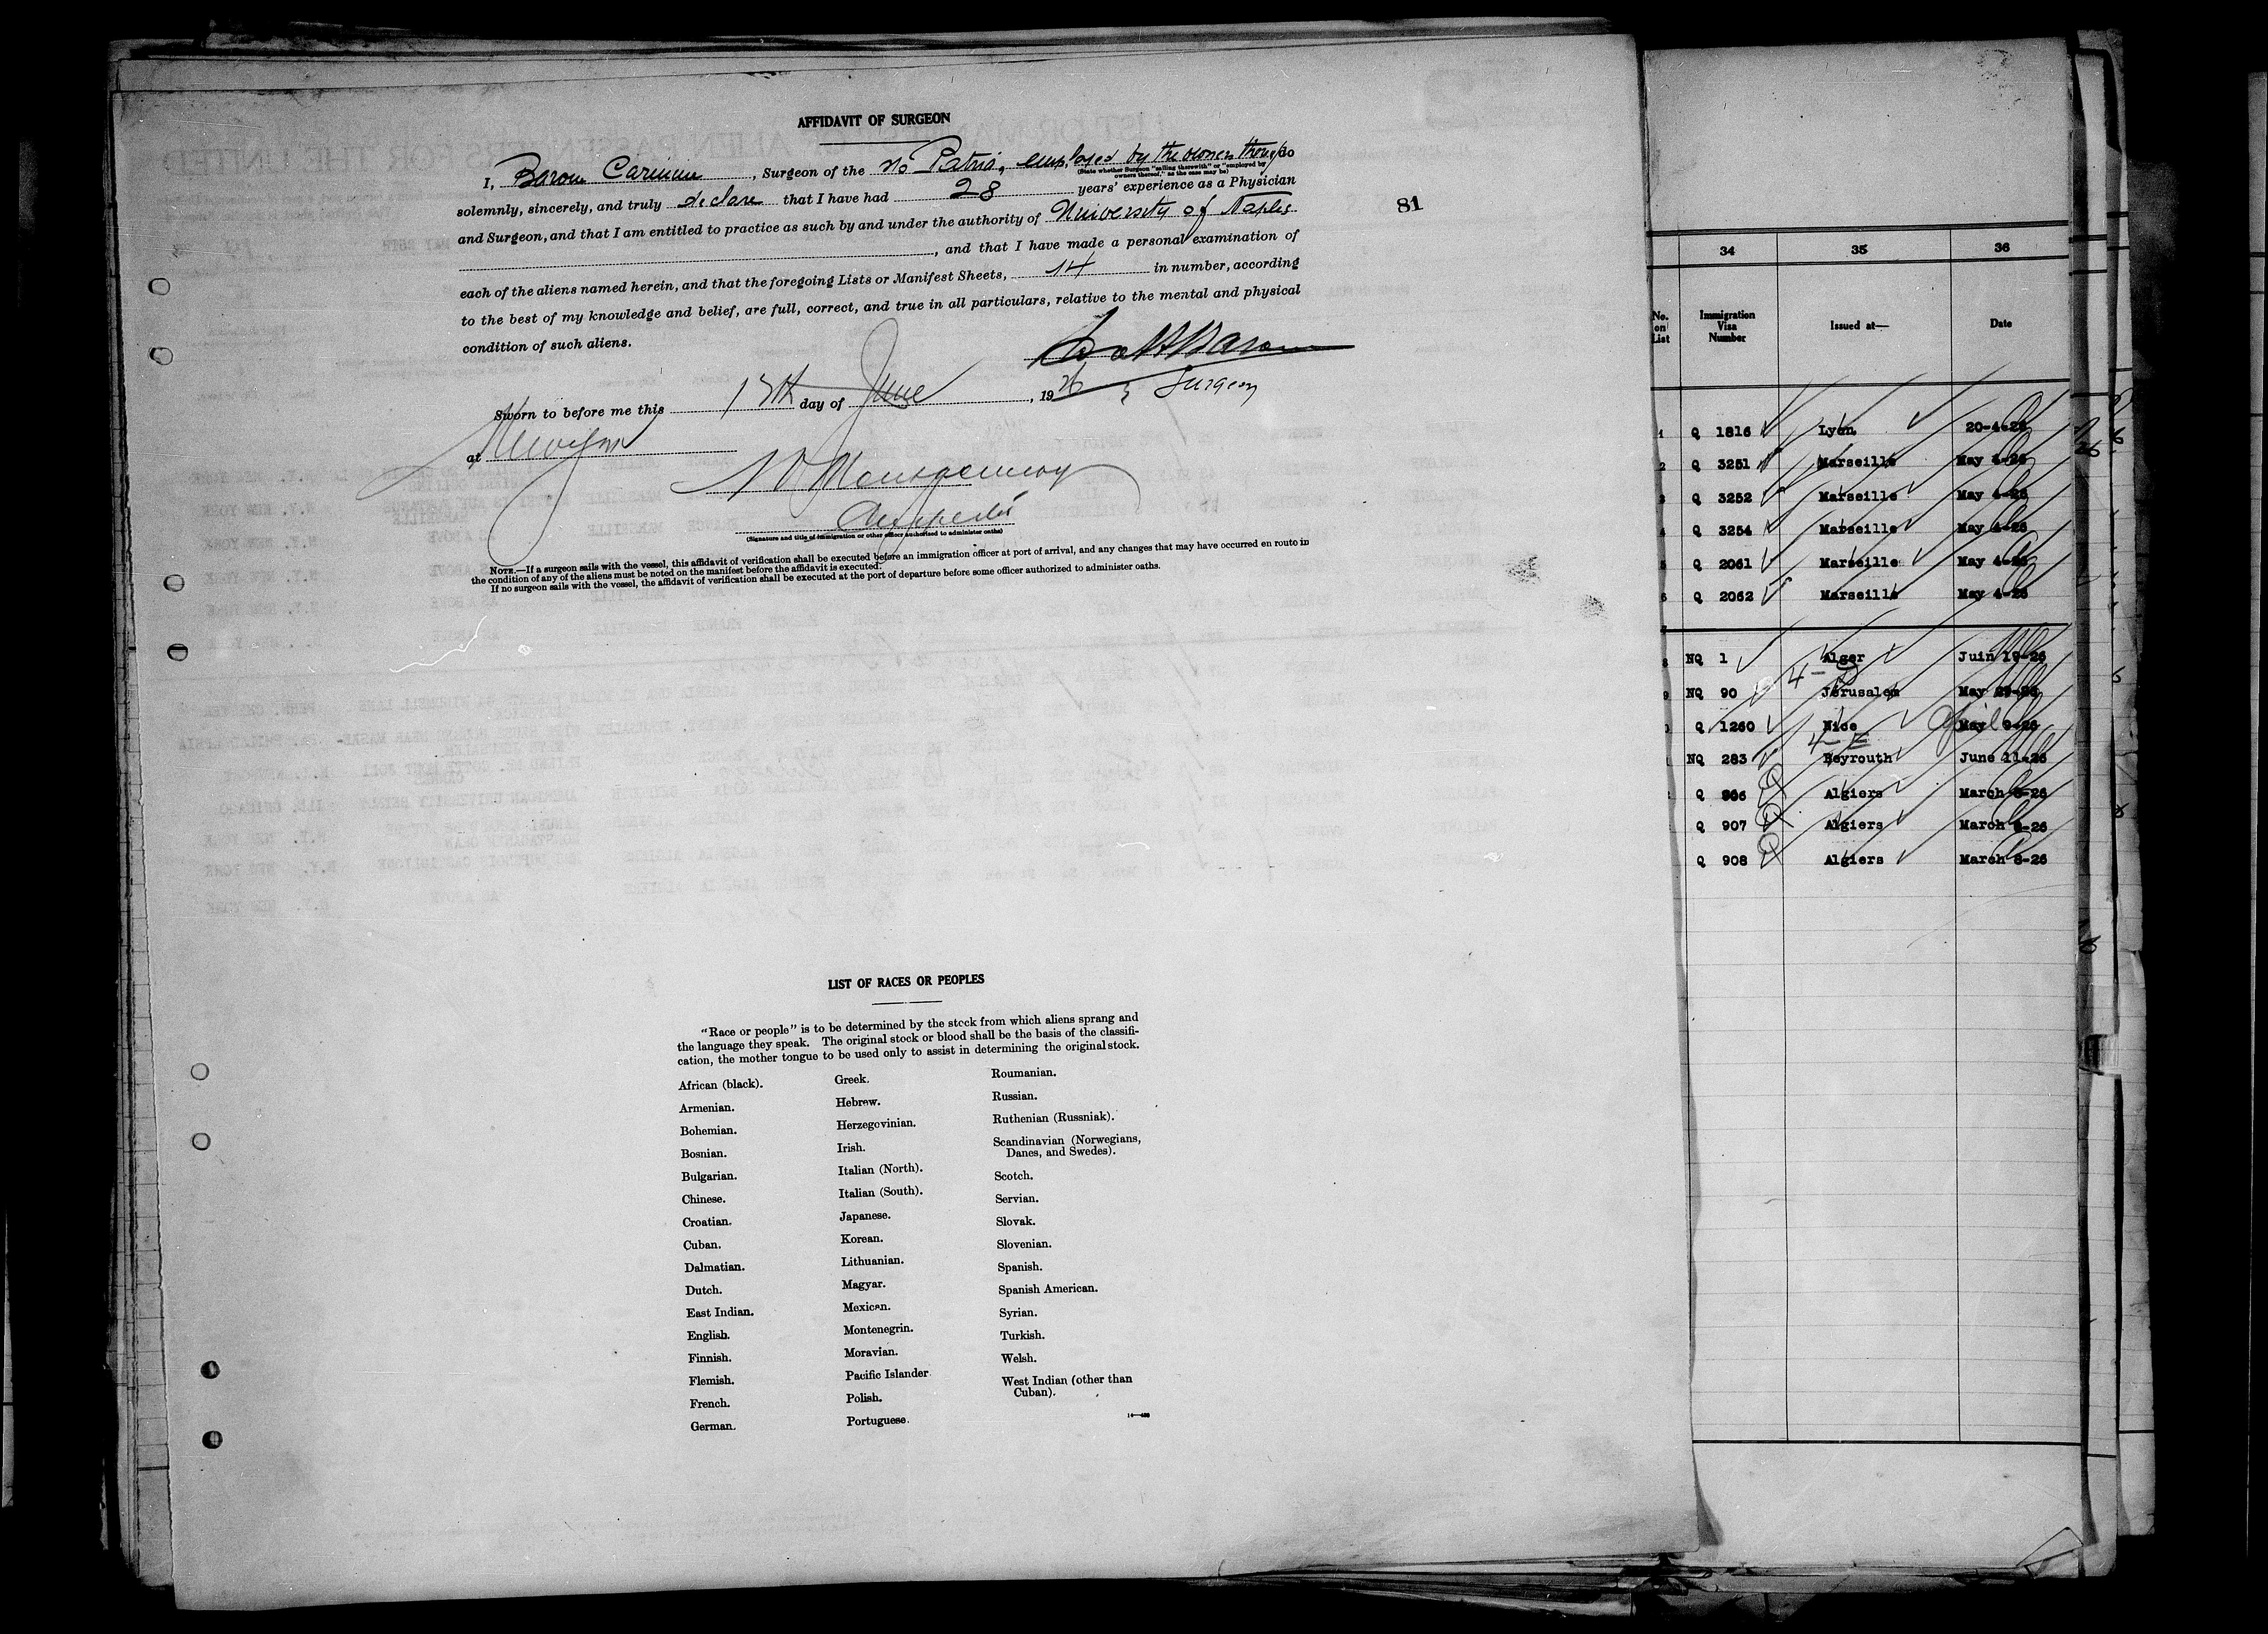 AFFIDAVIT OF SURGEON
I, Barone Carmine, Surgeon of the SS Patria, employed by the owners thereof do
(State whether Surgeon "sailing therewith" or "employed by
owners thereof," as the case may be)
solemnly, sincerely, and truly declare that I have had 28 years' experience as a Physician
and Surgeon, and that I am entitled to practice as such by and under the authority of University of Naples
, and that I have made a personal examination of
each of the aliens named herein, and that the foregoing Lists or Manifest Sheets, 14 in number, according
to the best of my knowledge and belief, are full, correct, and true in all particulars, relative to the mental and physical
condition of such aliens.
Surgeon
Sworn to before me this 15th day of June, 1926
at New York
Montgomery
Inspector
(Signature and title of immigration or other officer authorized to administer oaths)
NOTE.—If a surgeon sails with the vessel, this affidavit of verification shall be executed before an immigration officer at port of arrival, and any changes that may have occurred en route in
the condition of any of the aliens must be noted on the manifest before the affidavit is executed.
If no surgeon sails with the vessel, the affidavit of verification shall be executed at the port of departure before some officer authorized to administer oaths.
81
LIST OF RACES OR PEOPLES
"Race or people" is to be determined by the stock from which aliens sprang and
the language they speak. The original stock or blood shall be the basis of the classifi-
cation, the mother tongue to be used only to assist in determining the original stock.
African (black).
Armenian.
Bohemian.
Bosnian.
Bulgarian.
Chinese.
Croatian.
Cuban.
Dalmatian.
Dutch.
East Indian.
English.
Finnish.
Flemish.
French.
German.
Greek.
Hebrew.
Herzegovinian.
Irish.
Italian (North).
Italian (South).
Japanese.
Korean.
Lithuanian.
Magyar.
Mexican.
Montenegrin.
Moravian.
Pacific Islander.
Polish.
Portuguese.
Roumanian.
Russian.
Ruthenian (Russniak).
Scandinavian (Norwegians,
Danes, and Swedes).
Scotch.
Servian.
Slovak.
Slovenian.
Spanish.
Spanish American.
Syrian.
Turkish.
Welsh.
West Indian (other than
Cuban).
34 35 36
No. on List Immigration Visa Number Issued at— Date
1 Q 1816 Lyon 20-4-26
2 Q 3251 Marseille May 4-26
3 Q 3252 Marseille May 4-26
4 Q 3254 Marseille May 4-26
5 Q 2061 Marseille May 4-26
6 Q 2062 Marseille May 4-26
8 NQ 1 Alger Juin 10-26
9 NQ 90 Jerusalem May 29-26
Q 1260 Nice May April 9-26
NQ 283 Beyrouth June 11-26
Q 906 Algiers March 8-26
Q 907 Algiers March 8-26
Q 908 Algiers March 8-26